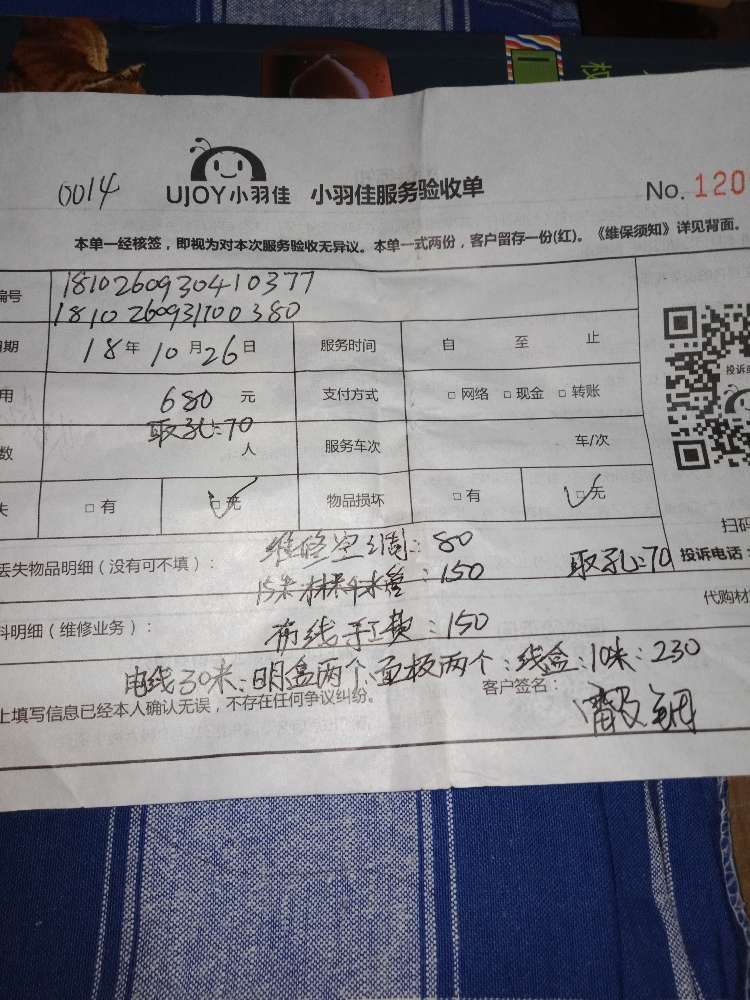 0014
UJOY小羽佳 小羽佳服务验收单
No. 120
本单一经核签，即视为对本次服务验收无异议。本单一式两份，客户留存一份(红)。《维保须知》详见背面。
编号 1810260930410377
1810260931700380
日期 18年10月26日 服务时间 自 至 止
用 680元 支付方式 □网络 □现金 □转账
取孔:70
数 人 服务车次 车/次
失 □有 □无 物品损坏 □有 □无
投诉
扫码
丢失物品明细（没有可不填）： 维修空调:80
取孔:70 投诉电话:
15米材料水管:150
代购材
料明细（维修业务）： 布线手工费:150
电线30米:明盒两个:面板两个:线盒:10米:230
上填写信息已经本人确认无误，不存在任何争议纠纷。 客户签名：